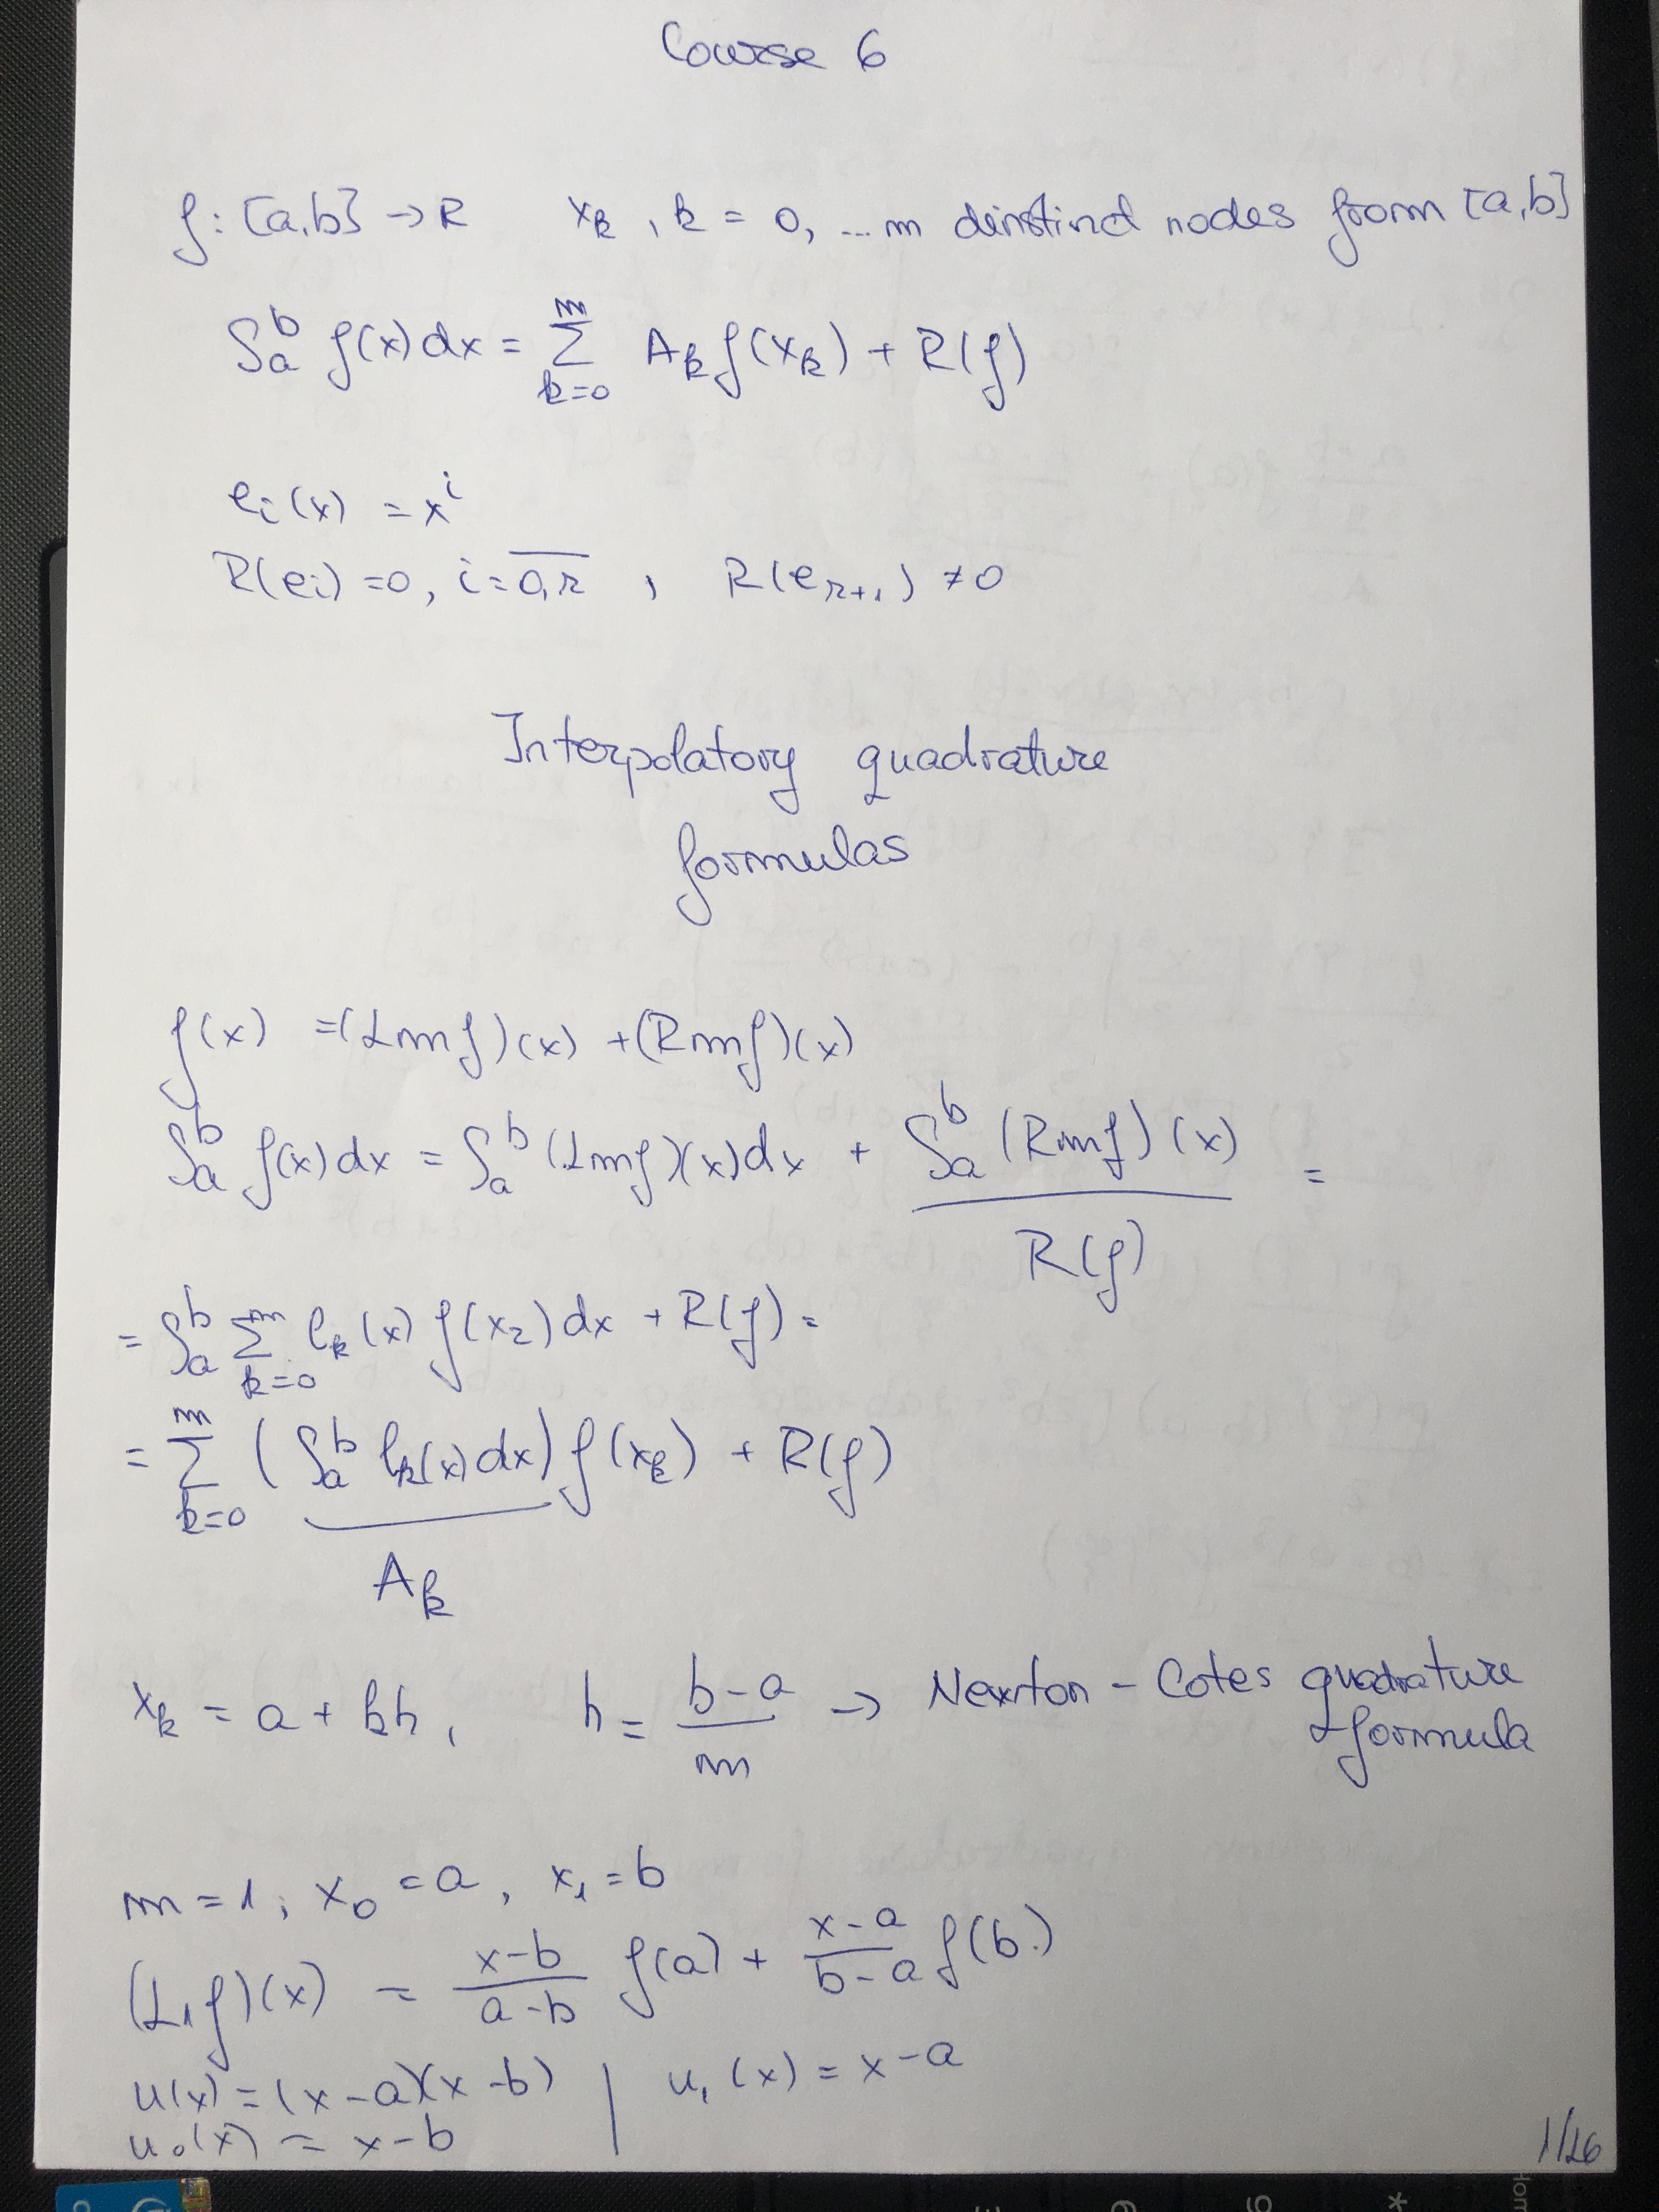 Course 6
f: [a,b] → R   x_k , k = 0, ... m dinstind nodes from [a,b]
∫_a^b f(x) dx = Σ_{k=0}^m A_k f(x_k) + R(f)
e_i(x) = x^i
R(e_i) = 0, i = \overline{0,r} , R(e_{r+1}) ≠ 0
Interpolatory quadrature
formulas
f(x) = (Lmf)(x) + (Rmf)(x)
∫_a^b f(x) dx = ∫_a^b (Lmf)(x) dx + ∫_a^b (Rmf)(x) =
R(f)
= ∫_a^b Σ_{k=0}^m l_k(x) f(x_2) dx + R(f) =
= Σ_{k=0}^m (∫_a^b l_k(x) dx) f(x_k) + R(f)
A_k
x_k = a + kh, h = \frac{b-a}{m} → Newton - Cotes quadrature
formula
m = 1; x_0 = a, x_1 = b
(L_1f)(x) = \frac{x-b}{a-b} f(a) + \frac{x-a}{b-a} f(b)
u(x) = (x-a)(x-b) | u_1(x) = x-a
u_0(x) = x-b
1/26